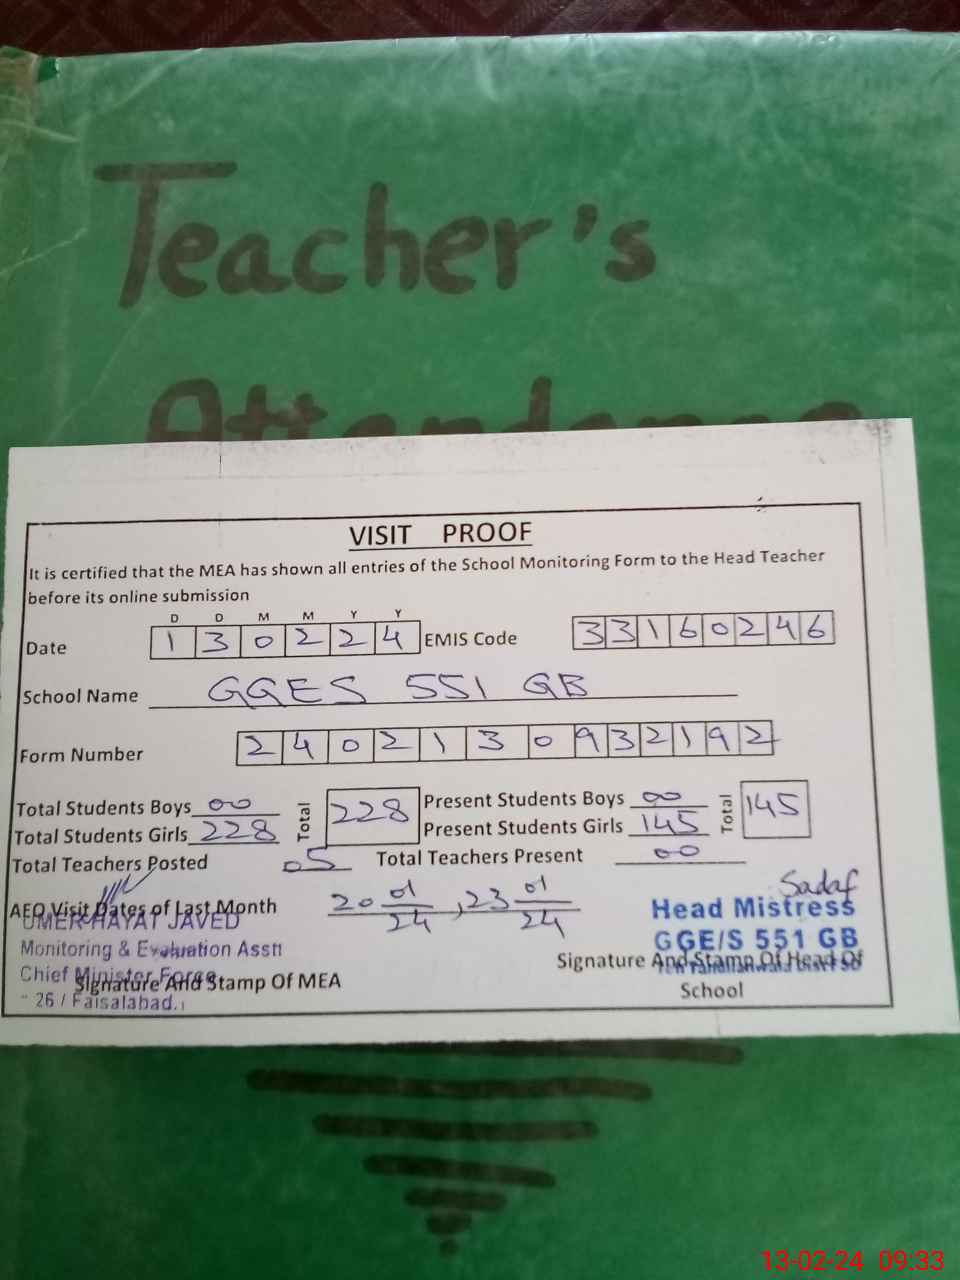 Teacher's
Attendance
VISIT PROOF
It is certified that the MEA has shown all entries of the School Monitoring Form to the Head Teacher
before its online submission
D D M M Y Y
Date 1 3 0 2 2 4 EMIS Code 3 3 1 6 0 2 4 6
School Name GGES 551 GB
Form Number 2 4 0 2 1 3 0 9 3 2 1 9 2
Total Students Boys 00 Total 228 Present Students Boys 00 Total 145
Total Students Girls 228 Present Students Girls 145
Total Teachers Posted 05 Total Teachers Present 00
AEO Visit Dates of Last Month 20 01/24, 23 01/24
Sadaf
UMER HAYAT JAVED
Monitoring & Evaluation Asstt
Chief Minister Force
26 / Faisalabad.
Signature And Stamp Of MEA
Head Mistress
GGE/S 551 GB
Signature And Stamp Of Head Of
School
13-02-24 09:33